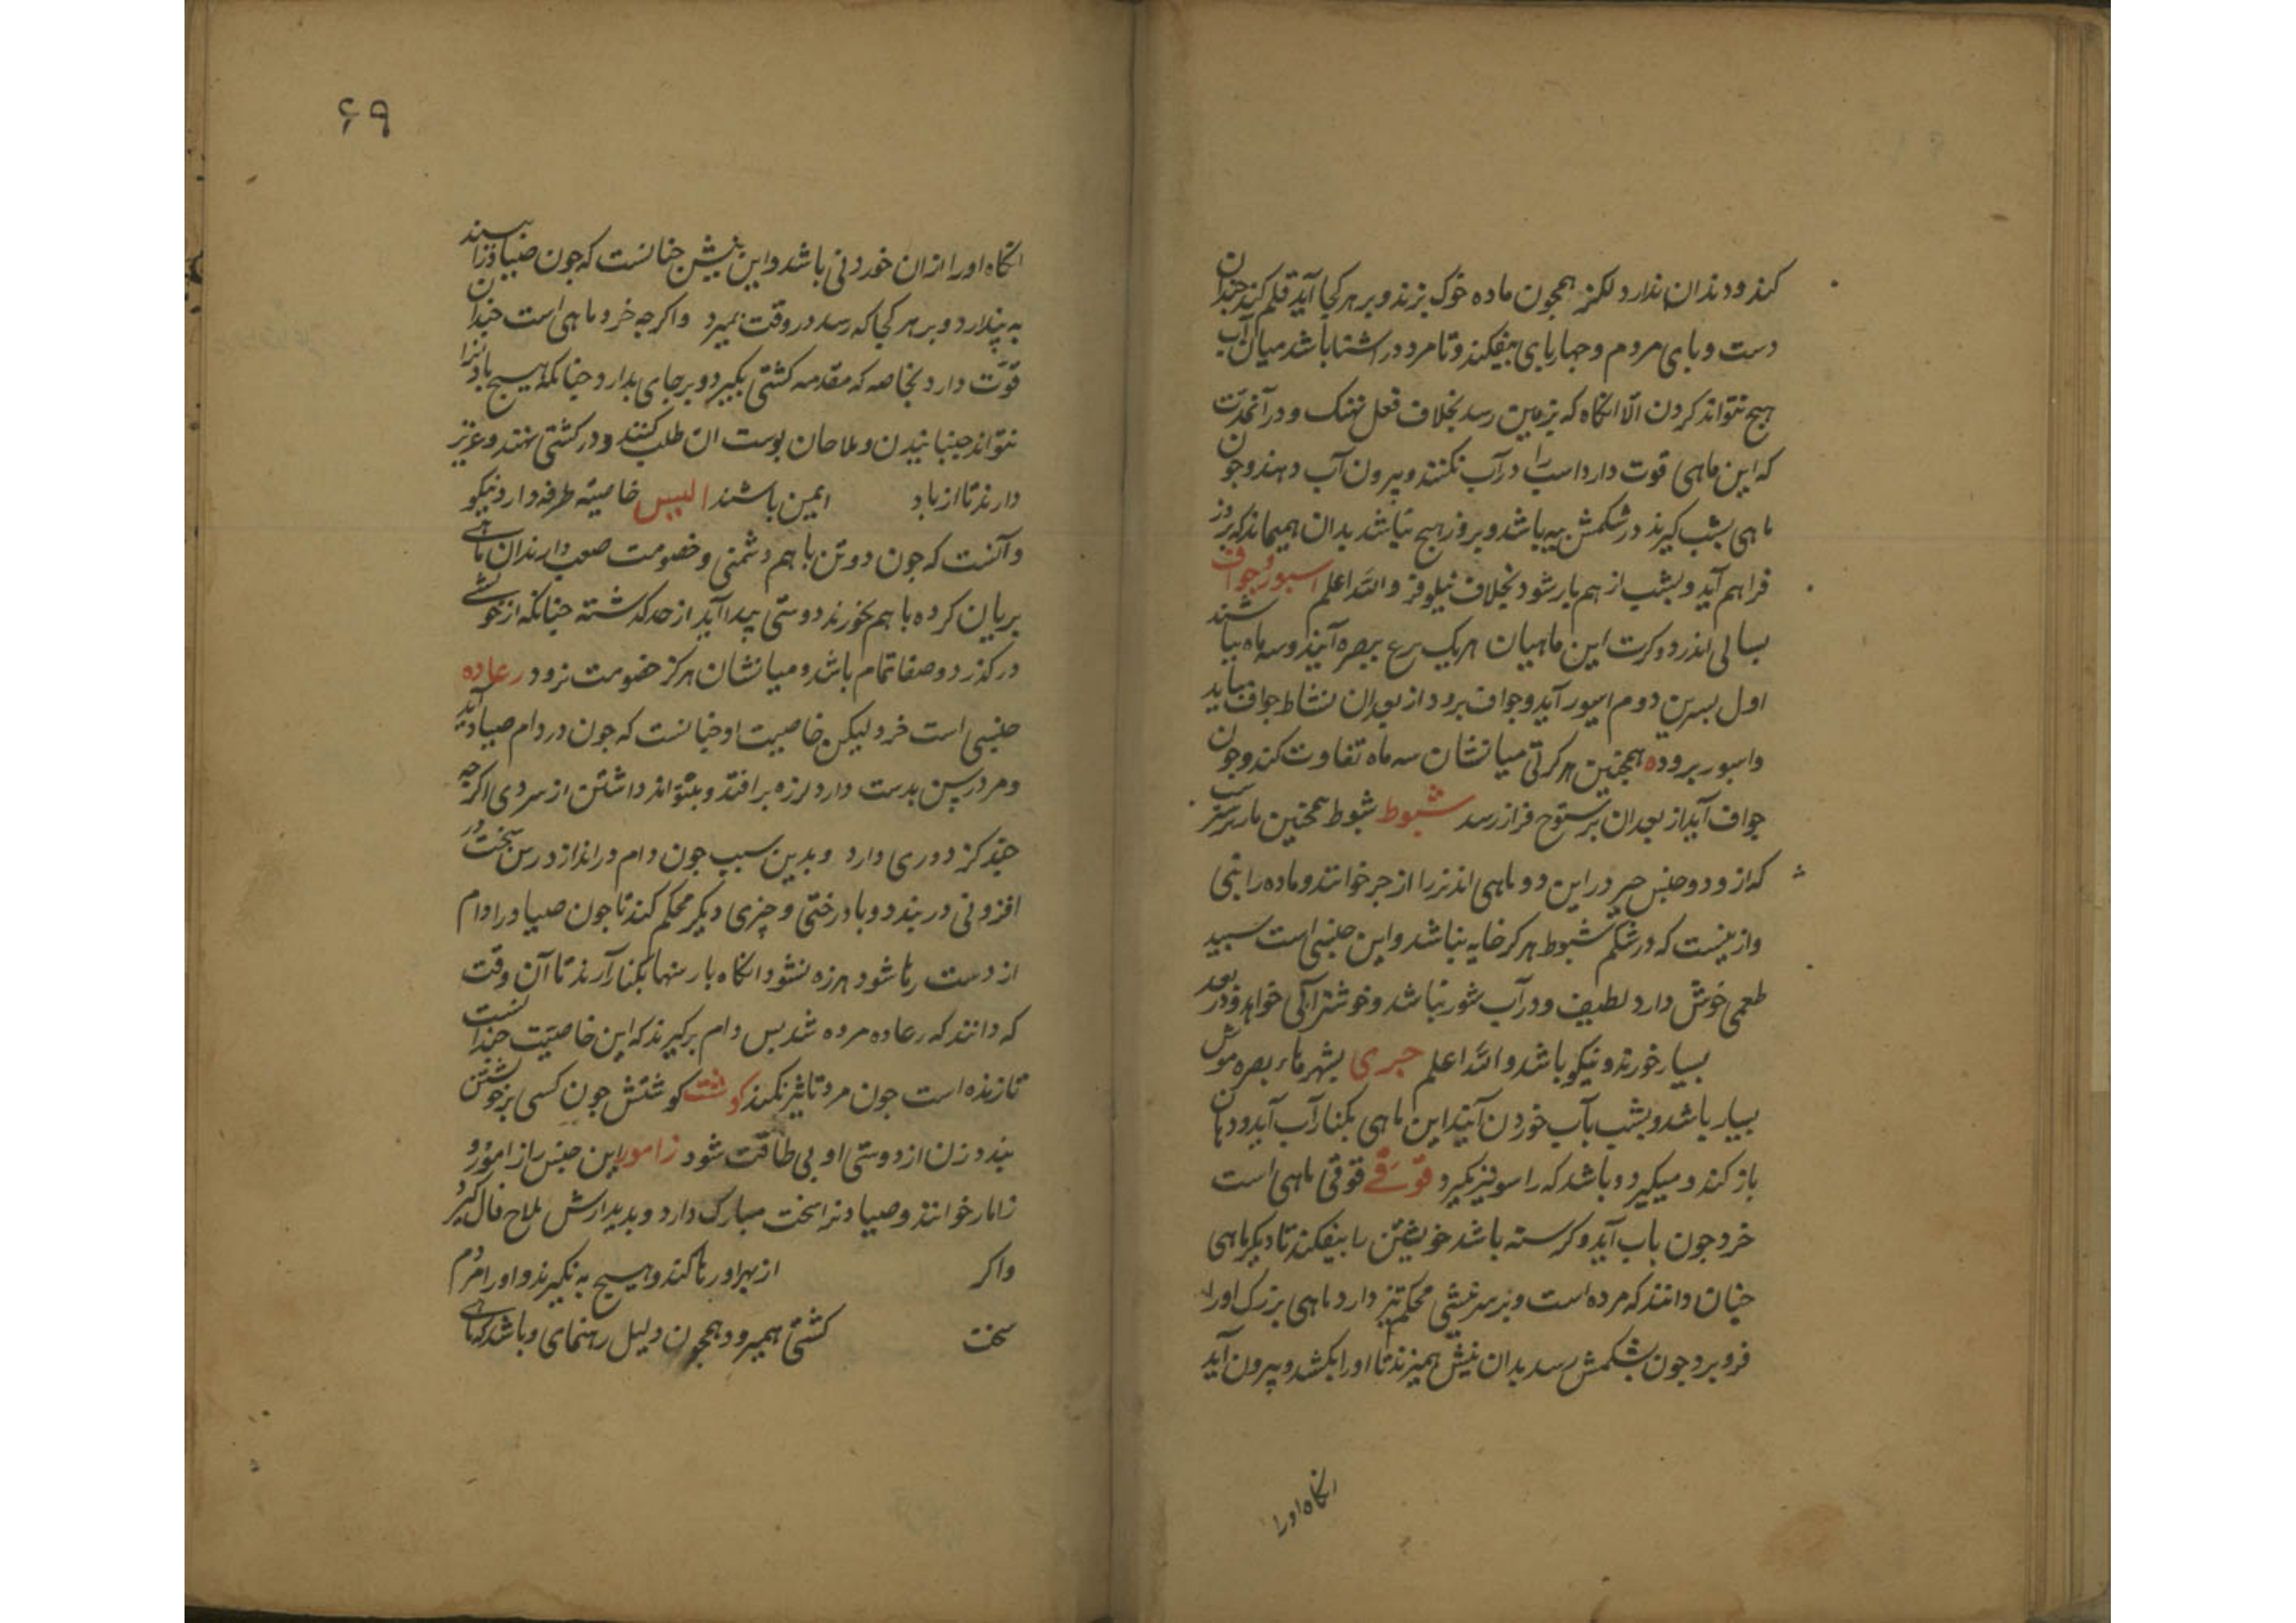 کند و دندان ندارد لکن همچون ماده خوک بزند و بر هر کجا آید قلم کند چندان
دست و بای مردم و جهاربای بیفکند و تا مرد در اشنا باشد میان آب
هیج نتواند کردن الّا انکاه که بزمین رسد بخلاف فعل نهنک و در آنحدّت
که این ماهی قوت دارد اسب را در آب نکنند و بیرون آب دهند و جون
ماهی بشب کیرند در شکمش بیه باشد و بروز هیج نباشد بدان همیماند که بروز
فراهم آید و بشب از هم باز شود بخلاف نیلوفر والله اعلم اسبور و جواف
بسالی اندر دو کرت این ماهیان هر یک برع ببصره آیند و سه ماه بباشند
اول بسرین دوم اسبور آید و جواف برود از بعد ان نشاط جواف بیاید
و اسبور برود همجنین هر کرتی میانشان سه ماه تفاوت کند و جون
جواف آید از بعد ان برستوح فراز رسد شبوط شبوط همجنین مار
که از و دو جنس جیر در این دو ماهی اند نر را از جر خوانند و ماده را بنی
و از نیست که در شکم شبوط هرکز خایه نباشد و این جنسی است سبید
طعمی خوش دارد لطیف و در آب شور نباشد و خوشتر آبی خواهد و در بعد
بسیار خورند و نیکو باشد والله اعلم جری بشهرهاء بصره موش
بسیار باشد و بشب بآب خوردن آیند این ماهی بکنار آب آید و دهان
باز کند و میکیرد و باشد که راسو نیز بکیرد قوقی قوقی ماهی است
خرد جون باب آید و کرسنه باشد خویشتن را بیفکند تا دیکر ماهی
جنان دانند که مرده است و بر سر نیشی محکم تیز دارد ماهی بزرک او را
فرو برد جون بشکمش رسد بدان نیش همیزند تا او را بکشد و بیرون آید
انکاه او را
۶۹
انکاه او را از ان خوردنی باشد و این نیش جنانست که جون صیاد نرا بیند
به پندارد و بر هر کجا که رسد در وقت بمیرد و اکرجه خرد ماهی است جندان
قوّت دارد بخاصه که مقدمه کشتی بکیرد و بر جای بدارد جنانکه هیج باد انرا
نتواند جنبانیدن و ملاحان بوست ان طلب کنند و در کشتی نهند و عزیز
دارند تا از باد ایمن باشند البیس خاصیّه طرفه دارد نیکو
و آنست که جون دو تن با هم دشمنی و خصومت صعب دارند ان ماهی
بریان کرده با هم بخورند دوستی پیدا آید از حد کذشته جنانکه از خویشی
در کذرد و صفا تمام باشد و میانشان هرکز خصومت نرود رعاده
جنسی است خرد لیکن خاصیت او جنانست که جون در دام صیاد آید
و مرد رسن بدست دارد لرزه بر افتد و بنتواند داشتن از سردی اکرجه
جند کز دوری دارد و بدین سبب جون دام در اندازد رسن سخت در
افزونی در بندد و با درختی و چیزی دیکر محکم کند تا جون صیاد را دام
از دست رها شود هرزه نشود انکاه بارسنها بکنار آرند تا آن وقت
که دانند که رعاده مرده شد بس دام برکیرند که این خاصیّت جندانست
تا زنده است جون مرد تاثیر نکند کوشت کوشتش جون کسی بر خویشتن
بندد زن از دوستی او بی طاقت شود زامور این جنس را زامور و
زامار خوانند و صیاد نرا سخت مبارک دارد و بدیدارش ملاح فال کیرد
و اکر از بهر او رها کند و هیج به نکیرند و او را مردم
سخت کشتی همیرود همجون دلیل رهنمای و باشد که ماهی